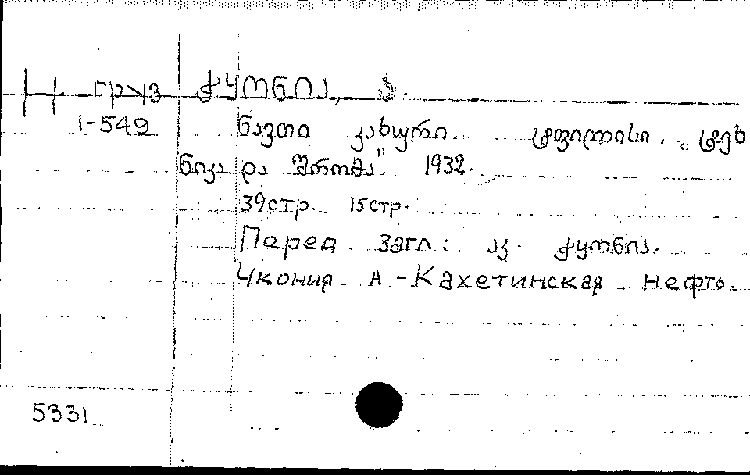 Груз ჭყონია, ა.
1-549 ნავთი კახური. ტფილისი. „ტეხ
ნიკა და შრომა" 1932.
39стр 15стр.
Перед загл: აკ. ჭყონია.
Чкония А. - Кахетинская нефть.
5331